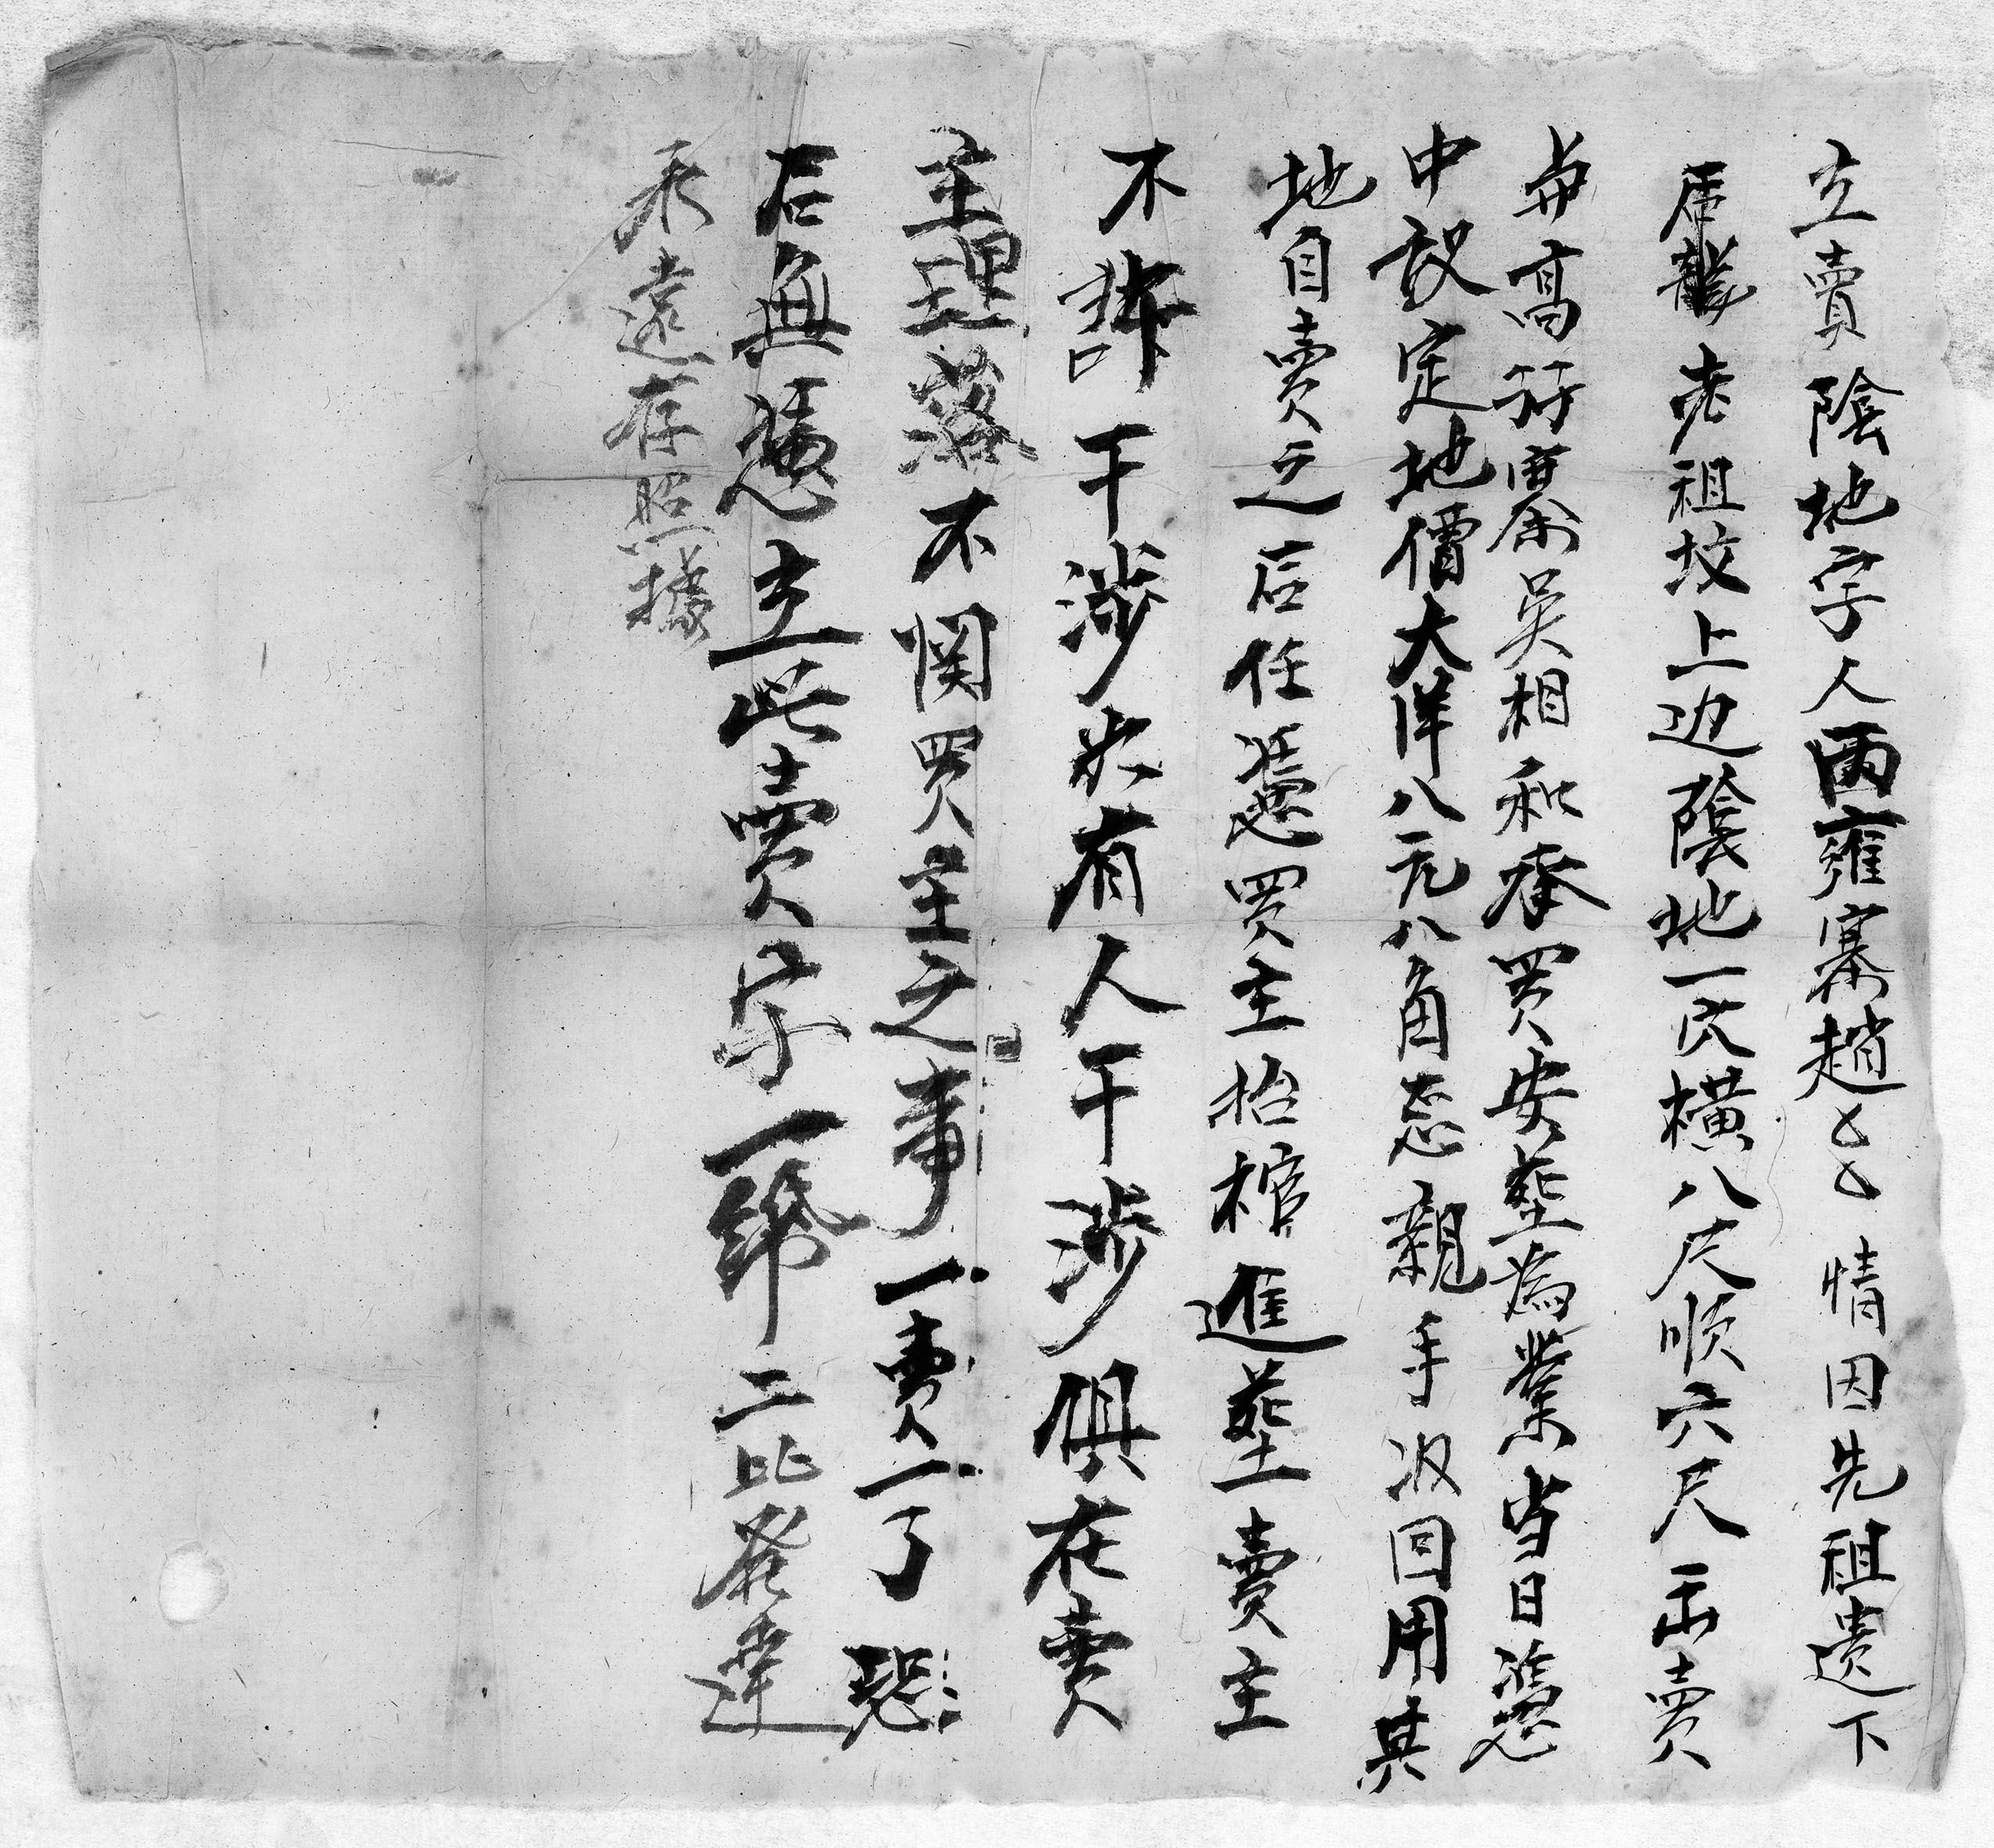 立賣陰地字人兩雍寨趙乙乙情因先祖遗下
尾龍老祖坟上边陰地一穴横八尺順六尺出賣
與高圩寨吴相和承買安塟為業当日憑
中議定地價大洋八元八角忘親手收回用其
地自賣之后任憑買主抬棺進塟賣主
不許干涉如有人干涉俱在賣
主理落不関買主之事一賣一了恐
后無憑立此賣字一紙二比發達
永遠存照據